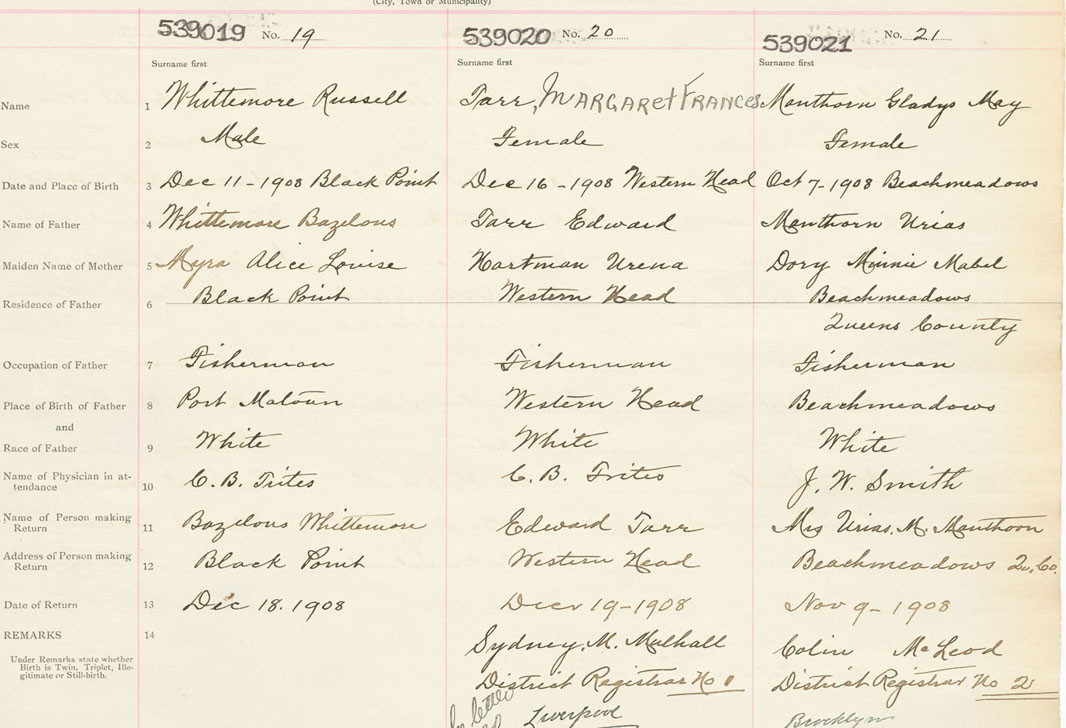 (City, Town or Municipality)
539019 No. 19 539020 No. 20 539021 No. 21
Surname first Surname first Surname first
Name 1 Whittemore Russell Tarr, Margaret Frances Manthorn Gladys May
Sex 2 Male Female Female
Date and Place of Birth 3 Dec 11-1908 Black Point Dec 16-1908 Western Head Oct 7-1908 Beachmeadows
Name of Father 4 Whittemore Bazelous Tarr Edward Manthorn Urias
Maiden Name of Mother 5 Myra Alice Louise Hartman Urena Dory Minnie Mabel
Residence of Father 6 Black Point Western Head Beachmeadows
Queens County
Occupation of Father 7 Fisherman Fisherman Fisherman
Place of Birth of Father 8 Port Matoun Western Head Beachmeadows
and
Race of Father 9 White White White
Name of Physician in at-
tendance 10 C. B. Trites C. B. Trites J. W. Smith
Name of Person making
Return 11 Bazelous Whittemore Edward Tarr Mrs Urias. M. Manthorn
Address of Person making
Return 12 Black Point Western Head Beachmeadows Qu. Co.
Date of Return 13 Dec 18. 1908 Decr 19-1908 Nov 9-1908
REMARKS 14 Sydney. M. Mulhall Colin McLeod
Under Remarks state whether
Birth is Twin, Triplet, Ille-
gitimate or Still-birth.
District Registrar No 1 District Registrar No 2
be letter Liverpool Brooklyn